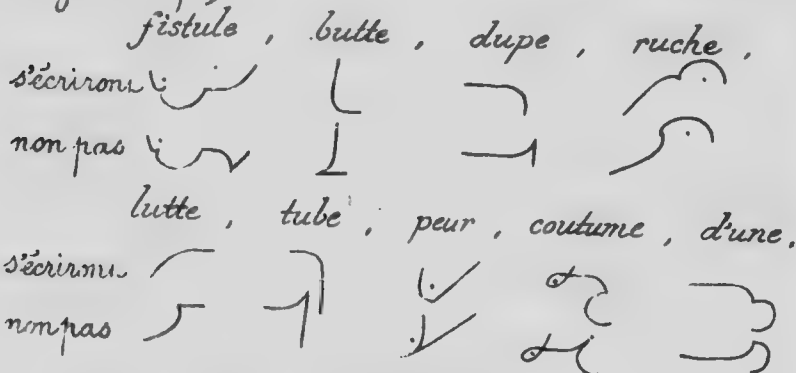 fistule, butte, dupe, ruche,
s'écriront
non pas
lutte, tube, peur, coutume, d'une,
s'écriront
non pas